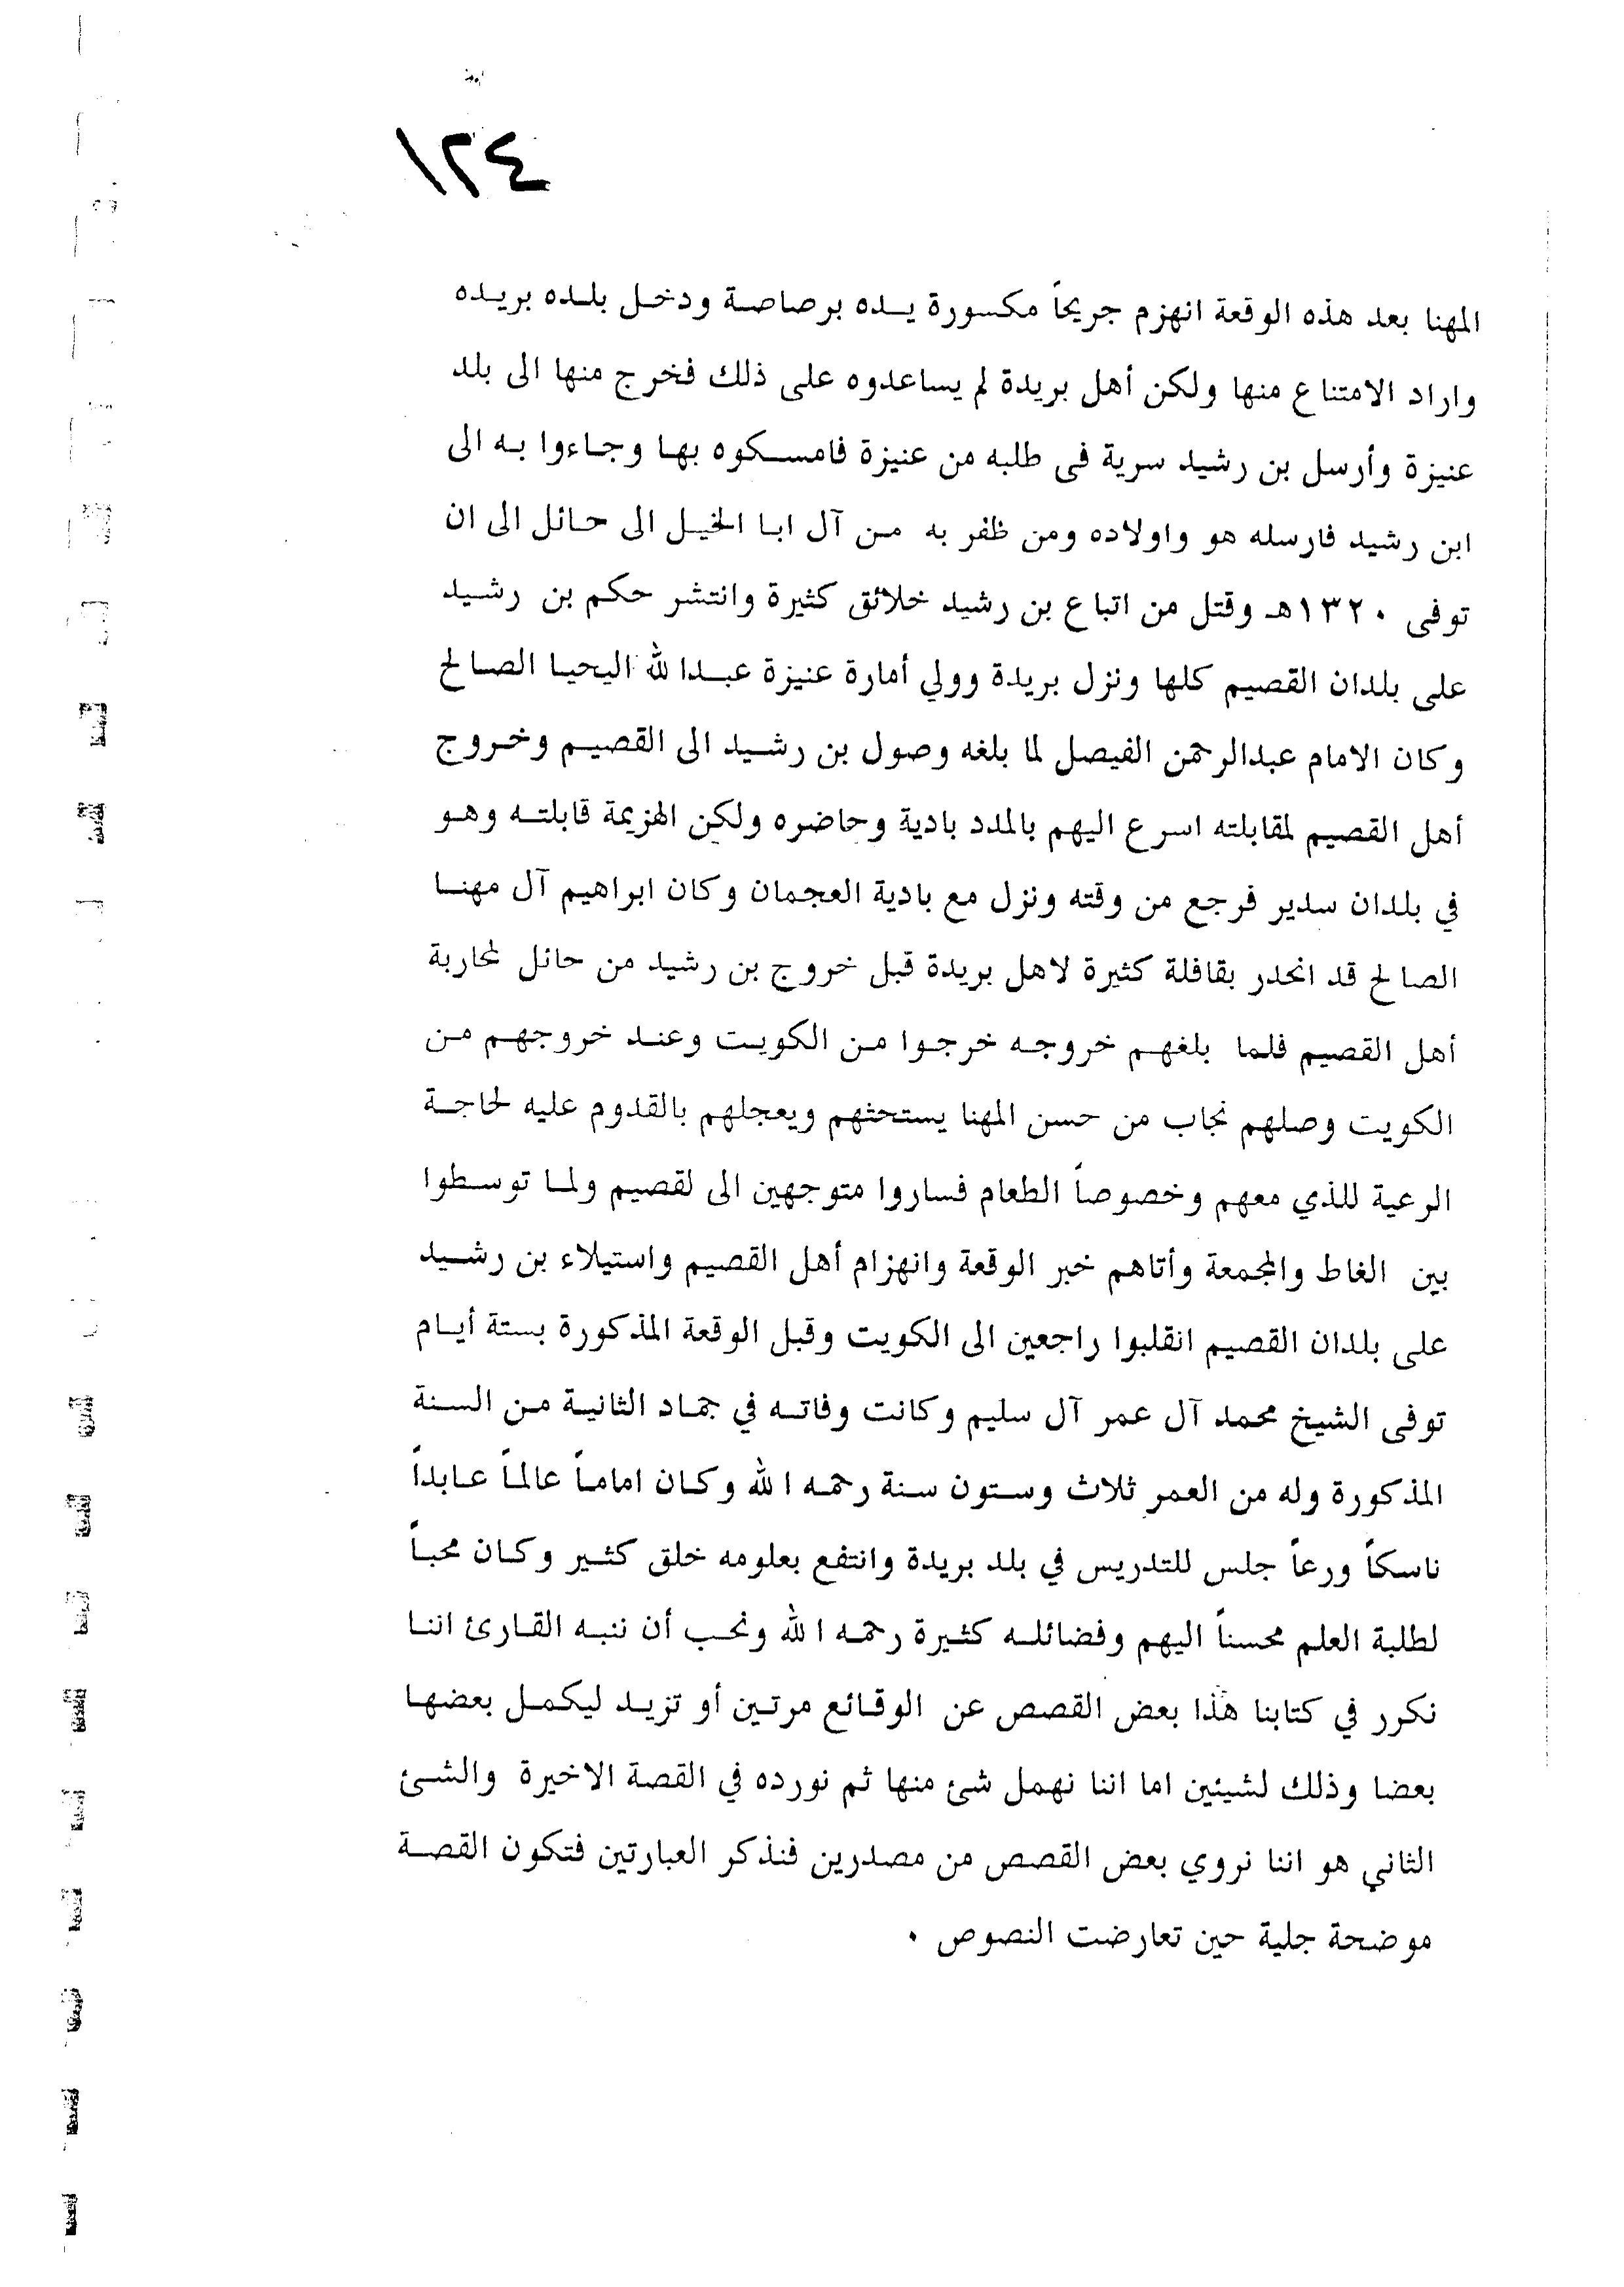 ١٢٤
المهنا بعد هذه الوقعة انهزم جريحاً مكسورة يده برصاصة ودخل بلده بريده
واراد الامتناع منها ولكن أهل بريدة لم يساعدوه على ذلك فخرج منها الى بلد
عنيزة وأرسل بن رشيد سرية فى طلبه من عنيزة فامسكوه بها وجاءوا به الى
ابن رشيد فارسله هو واولاده ومن ظفر به من آل ابا الخيل الى حائل الى ان
توفى ١٣٢٠هـ وقتل من اتباع بن رشيد خلائق كثيرة وانتشر حكم بن رشيد
على بلدان القصيم كلها ونزل بريدة وولي أمارة عنيزة عبدالله اليحيا الصالح
وكان الامام عبدالرحمن الفيصل لما بلغه وصول بن رشيد الى القصيم وخروج
أهل القصيم لمقابلته اسرع اليهم بالمدد بادية وحاضره ولكن الهزيمة قابلته وهو
في بلدان سدير فرجع من وقته ونزل مع بادية العجمان وكان ابراهيم آل مهنا
الصالح قد انحدر بقافلة كثيرة لاهل بريدة قبل خروج بن رشيد من حائل لمحاربة
أهل القصيم فلما بلغهم خروجه خرجوا من الكويت وعند خروجهم من
الكويت وصلهم نجاب من حسن المهنا يستحثهم ويعجلهم بالقدوم عليه لحاجة
الرعية للذي معهم وخصوصاً الطعام فساروا متوجهين الى لقصيم ولما توسطوا
بين الغاط والمجمعة وأتاهم خبر الوقعة وانهزام أهل القصيم واستيلاء بن رشيد
على بلدان القصيم انقلبوا راجعين الى الكويت وقبل الوقعة المذكورة بستة أيام
توفى الشيخ محمد آل عمر آل سليم وكانت وفاته في جماد الثانية من السنة
المذكورة وله من العمر ثلاث وستون سنة رحمه الله وكان اماماً عالماً عابداً
ناسكاً ورعاً جلس للتدريس في بلد بريدة وانتفع بعلومه خلق كثير وكان محباً
لطلبة العلم محسناً اليهم وفضائله كثيرة رحمه الله ونحب أن ننبه القارئ اننا
نكرر في كتابنا هذا بعض القصص عن الوقائع مرتين أو تزيد ليكمل بعضها
بعضا وذلك لشيئين اما اننا نهمل شئ منها ثم نورده في القصة الاخيرة والشئ
الثاني هو اننا نروي بعض القصص من مصدرين فنذكر العبارتين فتكون القصة
موضحة جلية حين تعارضت النصوص .